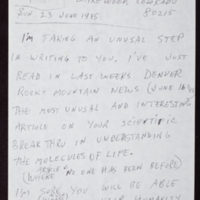 LAKEWOOD COLORADO
SUN. 23 JUNE 1985 80215
I'M TAKING AN UNUSAL STEP
IN WRITING TO YOU. I'VE JUST
READ IN LAST WEEKS DENVER
ROCKY MOUNTAIN NEWS (JUNE 16
THE MOST UNUSAL AND INTERESTING
ARTICLE ON YOUR SCIENTIFIC
BREAK THRU IN UNDERSTANDING
THE MOLECULES OF LIFE.
(WHERE NO ONE HAS BEEN BEFORE)
I'M SURE YOU WILL BE ABLE
YOUR HUMANITY